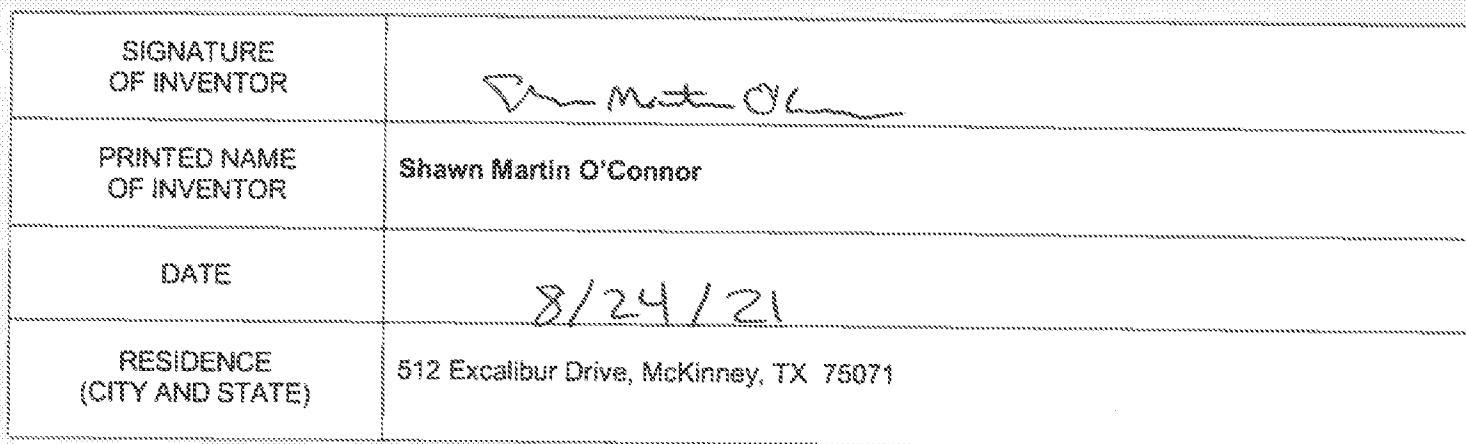 SIGNATURE
OF INVENTOR
PRINTED NAME
OF INVENTOR
Shawn Martin O'Connor
DATE
8/24/21
RESIDENCE
(CITY AND STATE)
512 Excalibur Drive, McKinney, TX 75071